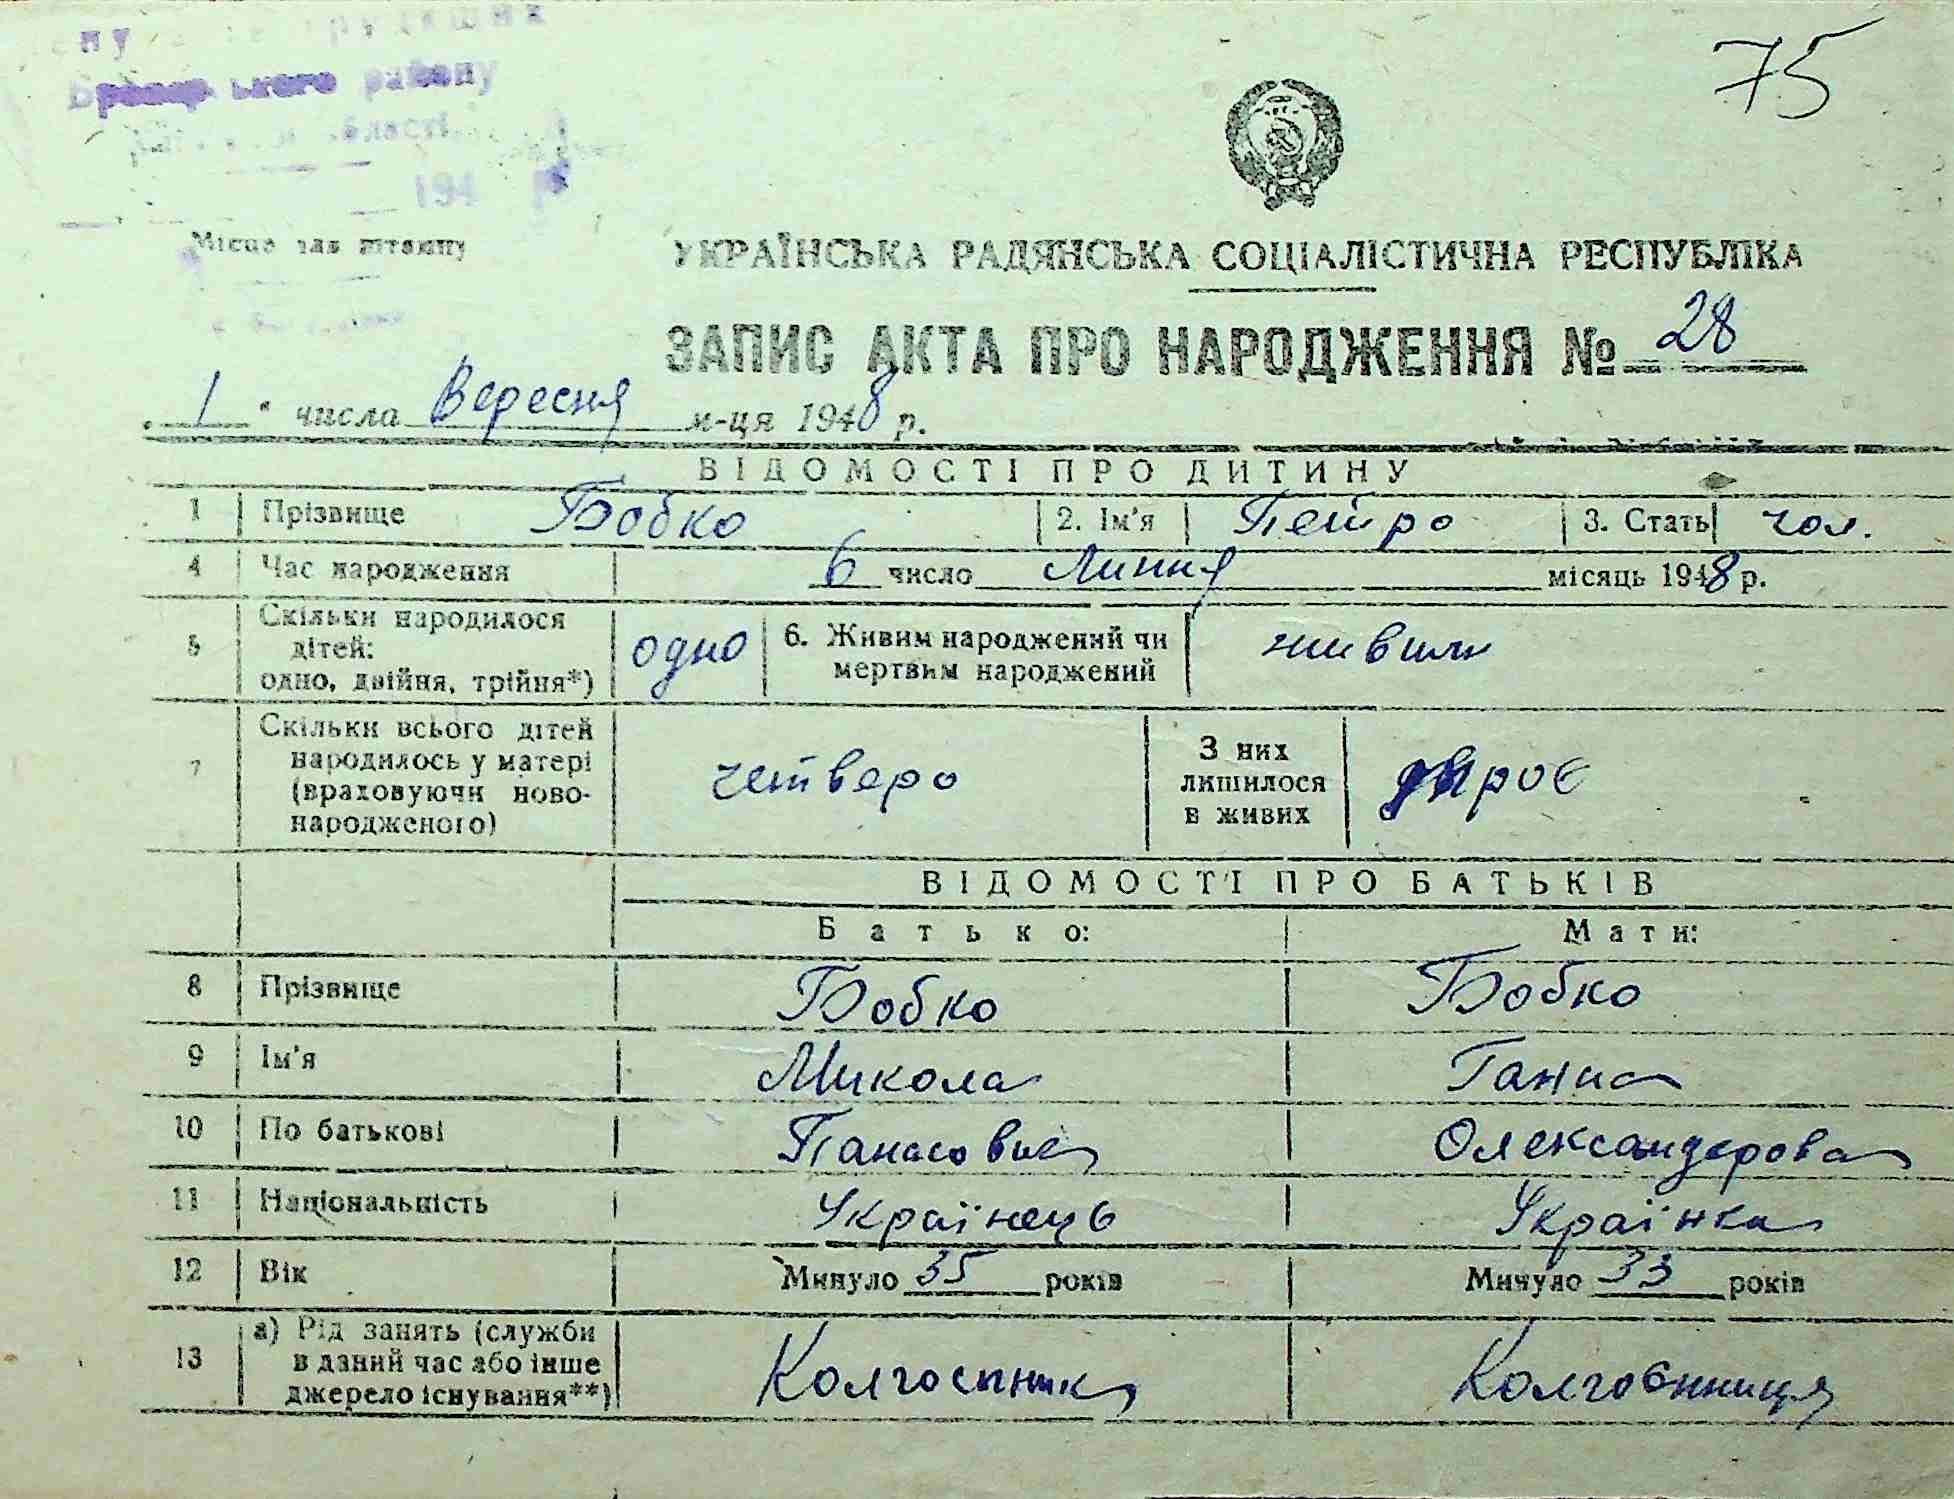 75
району
області
194
Місце для штампу
УКРАЇНСЬКА РАДЯНСЬКА СОЦІАЛІСТИЧНА РЕСПУБЛІКА
ЗАПИС АКТА ПРО НАРОДЖЕННЯ № 28
„ 1 " числа Вересня м-ця 1948 р.
ВІДОМОСТІ ПРО ДИТИНУ
1 Прізвище Бобко 2. Ім'я Петро 3. Стать чол.
4 Час народження 6 число Липня місяць 1948 р.
5 Скільки народилося дітей: одно, двійня, трійня*) одно 6. Живим народжений чи мертвим народжений живим
7 Скільки всього дітей народилось у матері (враховуючи новонародженого) четверо З них лишилося в живих
ВІДОМОСТІ ПРО БАТЬКІВ
Батько: Мати:
8 Прізвище Бобко Бобко
9 Ім'я Микола Ганна
10 По батькові Панасович Олександерова
11 Національність Українець Українка
12 Вік Минуло 35 років Минуло 33 років
13 а) Рід занять (служби в даний час або інше джерело існування**) Колгоспник Колгоспниця